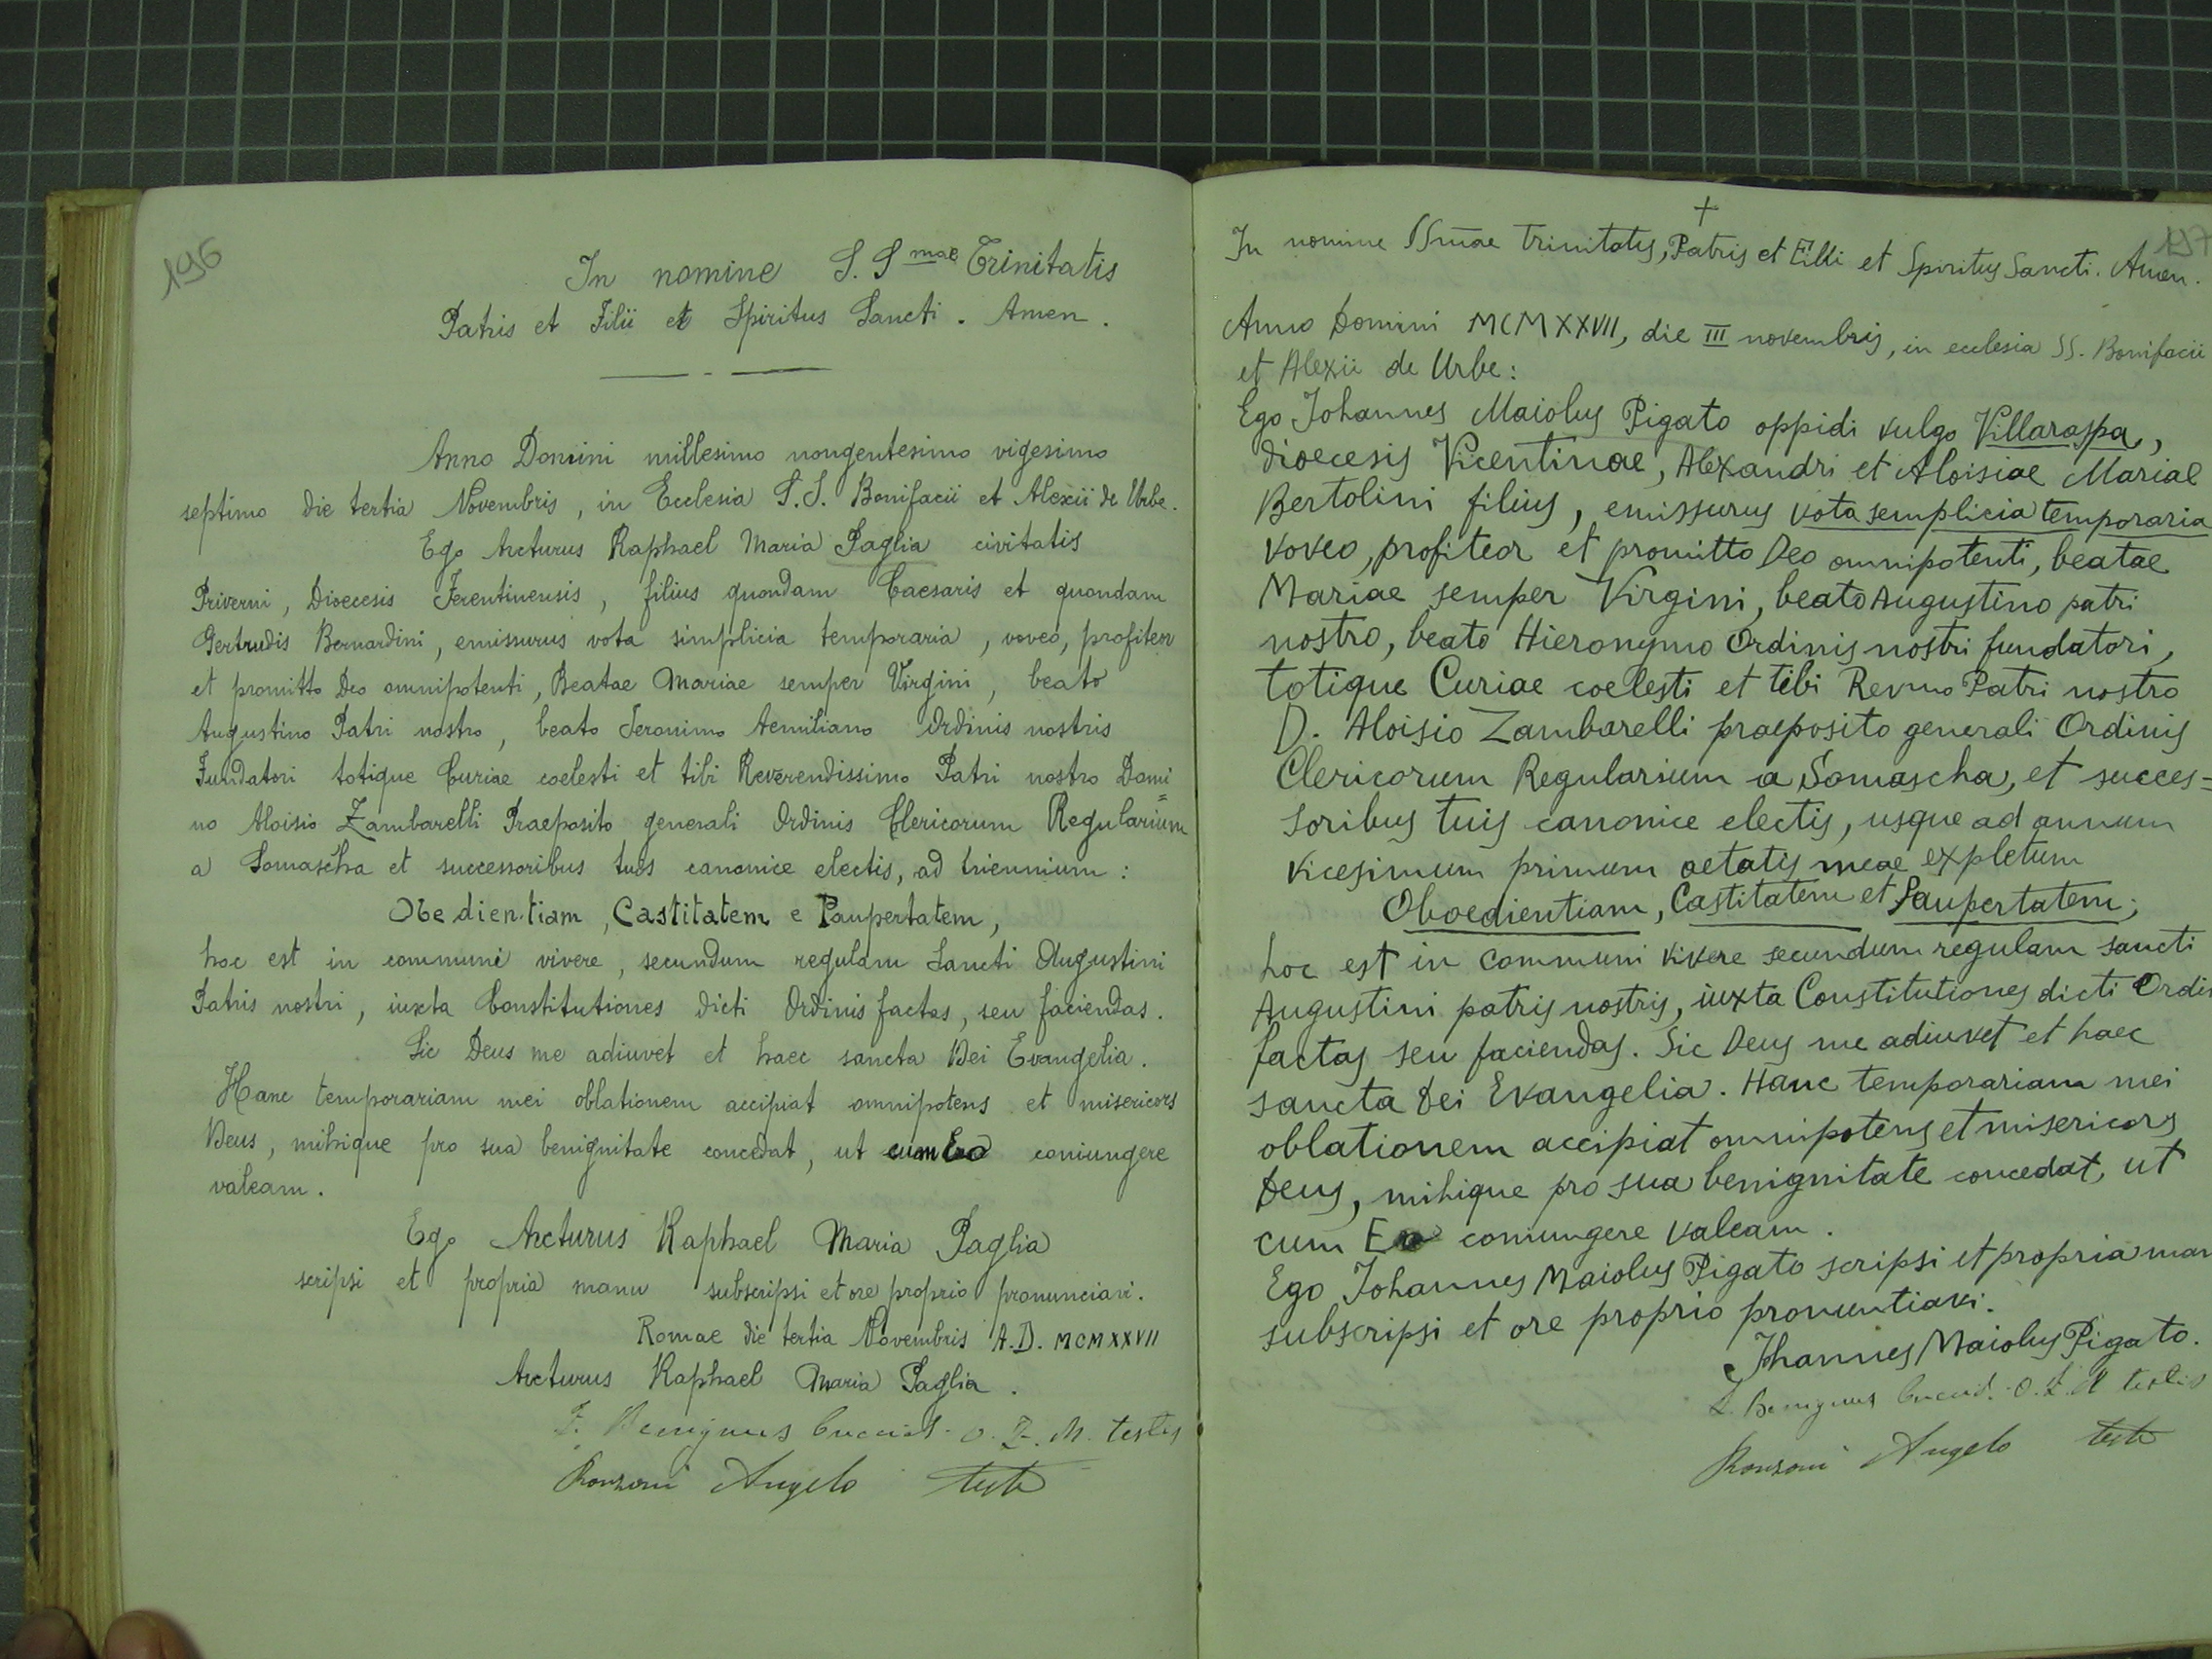 196
In nomine S. Smae Trinitatis
Patris et Filii et Spiritus Sancti. Amen.
Anno Domini millesimo nongentesimo vigesimo
septimo die tertia Novembris, in Ecclesia S.S. Bonifacii et Alexii de Urbe.
Ego Arcturus Raphael Maria Paglia civitatis
Priverni, Dioecesis Ferentinensis, filius quondam Caesaris et quondam
Gertrudis Bernardini, emissurus vota simplicia temporaria, voveo, profiteor
et promitto Deo omnipotenti, Beatae Mariae semper Virgini, beato
Augustino Patri nostro, beato Jeronimo Aemiliano Ordinis nostris
Fundatori totique Curiae coelesti et tibi Reverendissimo Patri nostro Domi=
no Aloisio Zambarelli Praeposito generali Ordinis Clericorum Regularium
a Somascha et successoribus tuis canonice electis, ad triennium:
Obedientiam, Castitatem e Paupertatem,
hoc est in communi vivere, secundum regulam Sancti Augustini
Patris nostri, iuxta Constitutiones dicti Ordinis factas, seu faciendas.
Sic Deus me adiuvet et haec sancta Dei Evangelia.
Hanc temporariam mei oblationem accipiat omnipotens et misericors
Deus, mihique pro sua benignitate concedat, ut cum Eo coniungere
valeam.
Ego Arcturus Raphael Maria Paglia
scripsi et propria manu subscripsi et ore proprio pronunciavi.
Romae die tertia Novembris A.D. MCMXXVII
Arcturus Raphael Maria Paglia.
Benignus O. F. M. testis
Ronzoni Angelo teste
197
+
In nomine SSmae Trinitatis, Patris et Filii et Spiritus Sancti. Amen.
Anno Domini MCMXXVII, die III novembris, in ecclesia SS. Bonifacii
et Alexii de Urbe:
Ego Johannes Maiolus Pigato oppidi vulgo Villaraspa,
dioecesis Vicentinae, Alexandri et Aloisiae Mariae
Bertolini filius, emissurus vota semplicia temporaria
voveo, profiteor et promitto Deo omnipotenti, beatae
Mariae semper Virgini, beato Augustino patri
nostro, beato Hieronymo Ordinis nostri fundatori,
totique Curiae coelesti et tibi Revmo Patri nostro
D. Aloisio Zambarelli praeposito generali Ordinis
Clericorum Regularium a Somascha, et succes=
soribus tuis canonice electis, usque ad annum
vicesimum primum aetatis meae expletum
Oboedientiam, Castitatem et Paupertatem;
hoc est in communi vivere secundum regulam sancti
Augustini patris nostris, iuxta Constitutiones dicti Ordi
factas seu faciendas. Sic Deus me adiuvet et haec
sancta Dei Evangelia. Hanc temporariam mei
oblationem accipiat omnipotens et misericors
Deus, mihique pro sua benignitate concedat, ut
cum Eo coniungere valeam.
Ego Johannes Maiolus Pigato scripsi et propria man
subscripsi et ore proprio pronuntiavi.
Jhannes Maiolus Pigato.
Benignus O. F. M testis
Ronzoni Angelo teste